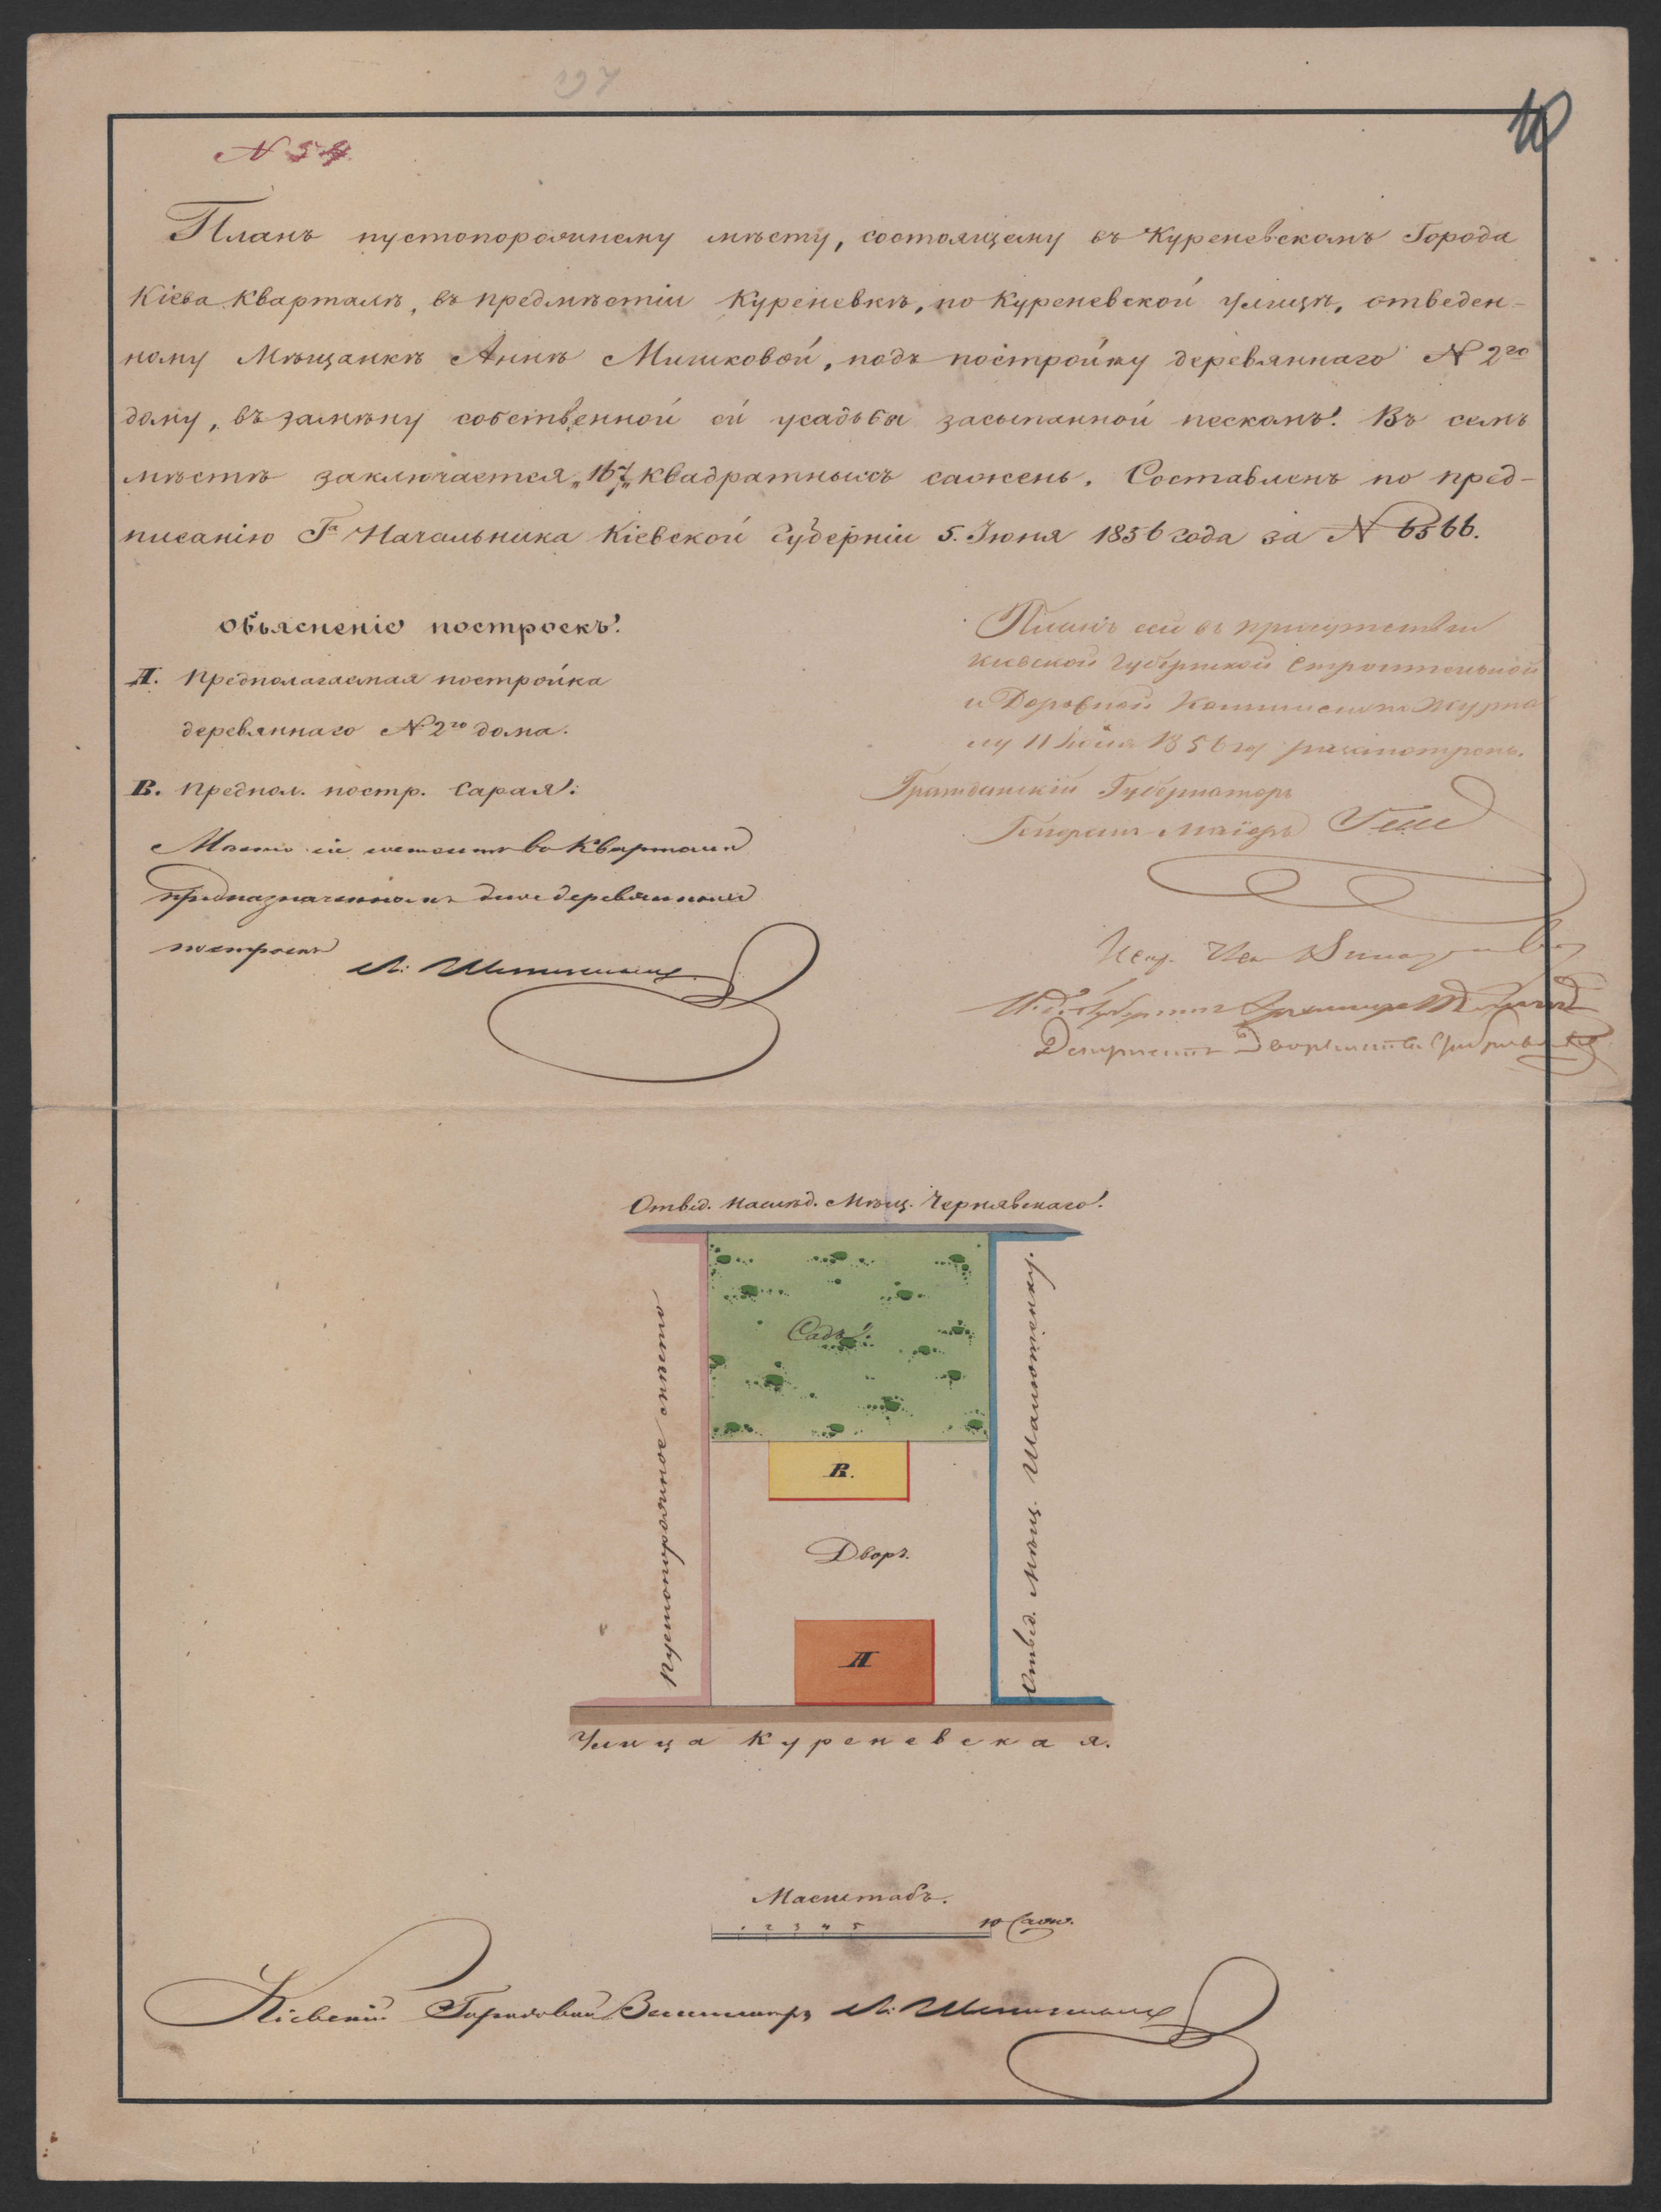 197
10
N 54.
Планъ пустопорожнему мѣсту, состоящему въ Куреневскомъ Города
Кіева Кварталѣ, въ предмѣстіи Куреневкѣ, по Куреневской улицѣ, отведен-
ному Мѣщанкѣ Аннѣ Мишковой, подъ постройку деревяннаго N 2го
дому, въ замѣну собственной ей усадьбы засыпанной пескомъ. Въ семъ
мѣстѣ заключается „167„ квадратныхъ сажень. Составленъ по пред-
писанію Га Начальника Кіевской Губерніи 5. Іюня 1856 года за N 6566.
Объясненіе построекъ.
А. Предполагаемая постройка
деревяннаго N 2го дома.
В. Предпол. постр. Сарая.
Место сіе состоитъ въ Кварталѣ
предназначенномъ для деревянныхъ
построекъ
Планъ сей въ присутствіи
Кіевской Губернской Строительной
и Дорожной Коммисіи по журна
лу 11 1856 г. разсмотренъ.
Гражданскій Губернаторъ
Генералъ-Маіоръ Гессе
Отвед. наслѣд. Мѣщ. Чернявскаго.
Пустопорожнее мѣсто
Садъ.
Отвед. Мѣщ.
В.
Дворъ.
А
Улица Куреневская.
Масштабъ.
1 2 3 4 5 10 Саж.
Кіевскій Городовой